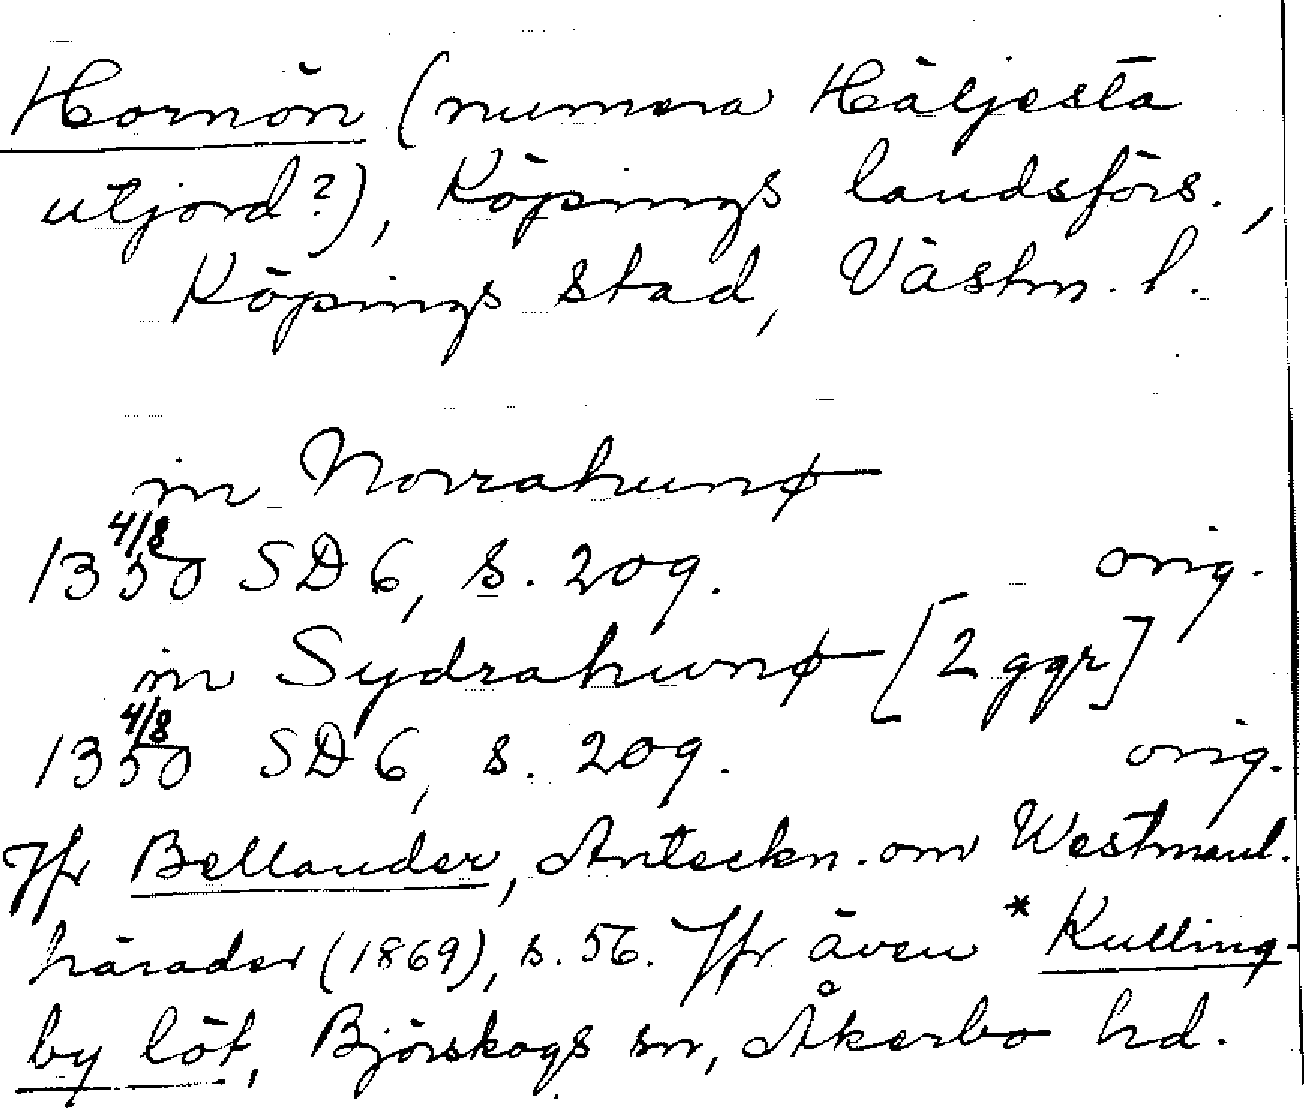 Hornön (numera Häljesta
utjord?), Köpings landsförs.,
Köpings stad, Västm. l.
in Norrahunø
1350 4/8 SD 6, s. 209. orig.
in Sydrahunø [2 ggr]
1350 4/8 SD 6, s. 209. orig.
Jfr Bellander, Anteckn. om Westmanl.
härader (1869), s. 56. Jfr även * Kulling-
by löt, Björskogs sn, Åkerbo hd.